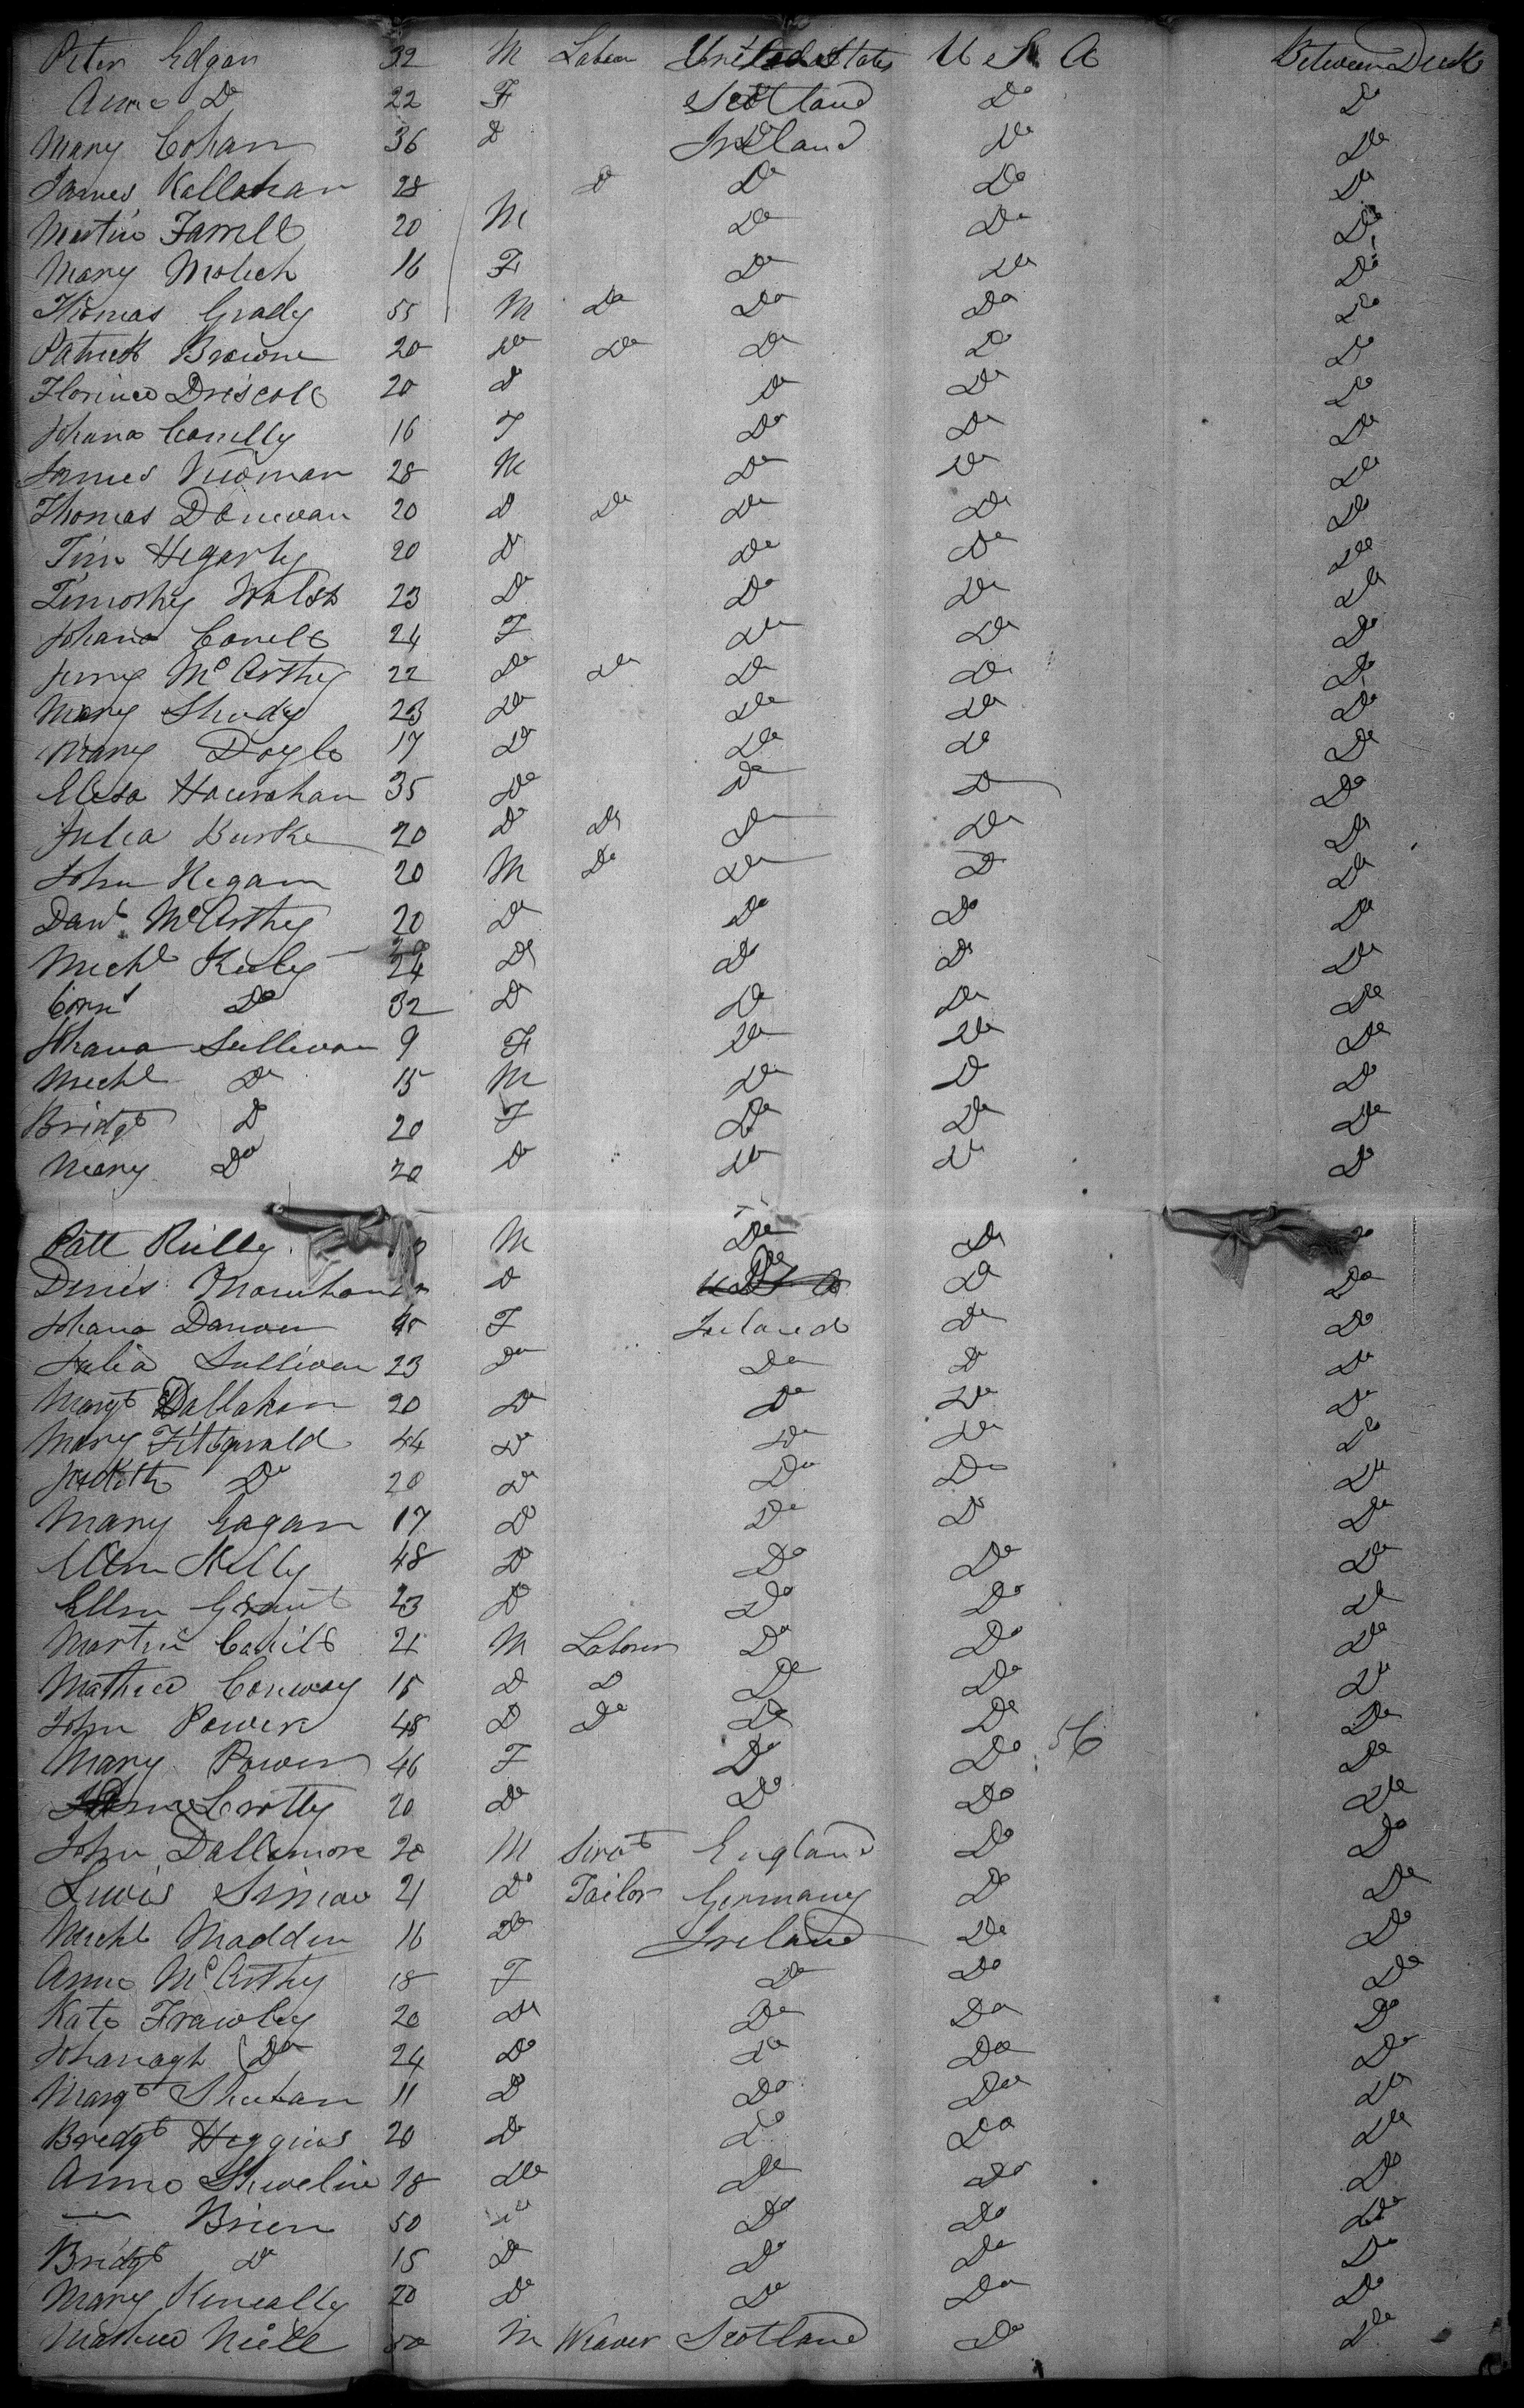 Peter Edgar 32 M Labor United States U S A Between Deck
Anne Do 22 F Scotland Do Do
Mary Cohan 36 Do Ireland Do Do
James Kallahan 28 Do Do Do Do
Martin Farrell 20 M Do Do Do
Mary 16 F Do Do Do
Thomas Grady 55 M Do Do Do Do
Patrick Browne 20 Do Do Do Do Do
Florince Driscoll 20 Do Do Do Do
Johana Conelly 16 F Do Do Do
James 28 M Do Do Do
Thomas Donevan 20 Do Do Do Do Do
Tim Hegarty 20 Do Do Do Do
Timothy Walsh 23 Do Do Do Do
Johana 24 F Do Do Do
Jerry McCarthy 22 Do Do Do Do Do
Mary 23 Do Do Do Do
Mary Doyle 17 Do Do Do Do
Eliza Hourahan 35 Do Do Do Do
Julia Burke 20 Do Do Do Do Do
John Regan 20 M Do Do Do Do
Danl McCarthy 20 Do Do Do Do
Michl 24 Do Do Do Do
Corns Do 32 Do Do Do Do
Johana Sullivan 9 F Do Do Do
Michl Do 15 M Do Do Do
Bridgt Do 20 F Do Do Do
Mary Do 20 Do Do Do Do
Patt Rielly M Do Do Do
Denis Do Do Do Do
Johana 45 F Ireland Do Do
Julia Sullivan 23 Do Do Do Do
Margt Callahan 20 Do Do Do Do
Mary Fitzgerald 44 Do Do Do Do
Judith Do 20 Do Do Do Do
Mary Gagan 17 Do Do Do Do
Ellen Kelly 48 Do Do Do Do
Ellen Grant 23 Do Do Do Do
Martin Cahill 21 M Laborer Do Do Do
Mathew Conway 15 Do Do Do Do Do
John Power 48 Do Do Do Do Do
Mary Power 46 F Do Do 56 Do
Crotty 20 Do Do Do Do
John Dallimore 20 M Servt England Do Do
Lewis Simon 21 Do Tailor Germany Do Do
Michl Madden 16 Do Ireland Do Do
Anne McCarthy 18 F Do Do Do
Kate Frawley 20 Do Do Do Do
Johanagh Do 24 Do Do Do Do
Margt Sheehan 11 Do Do Do Do
Bredgt Higgins 20 Do Do Do Do
Anne 18 Do Do Do Do
— Brien 50 Do Do Do Do
Bridgt Do 15 Do Do Do Do
Mary Keneally 20 Do Do Do Do
Mathew Neill 50 M Weaver Scotland Do Do